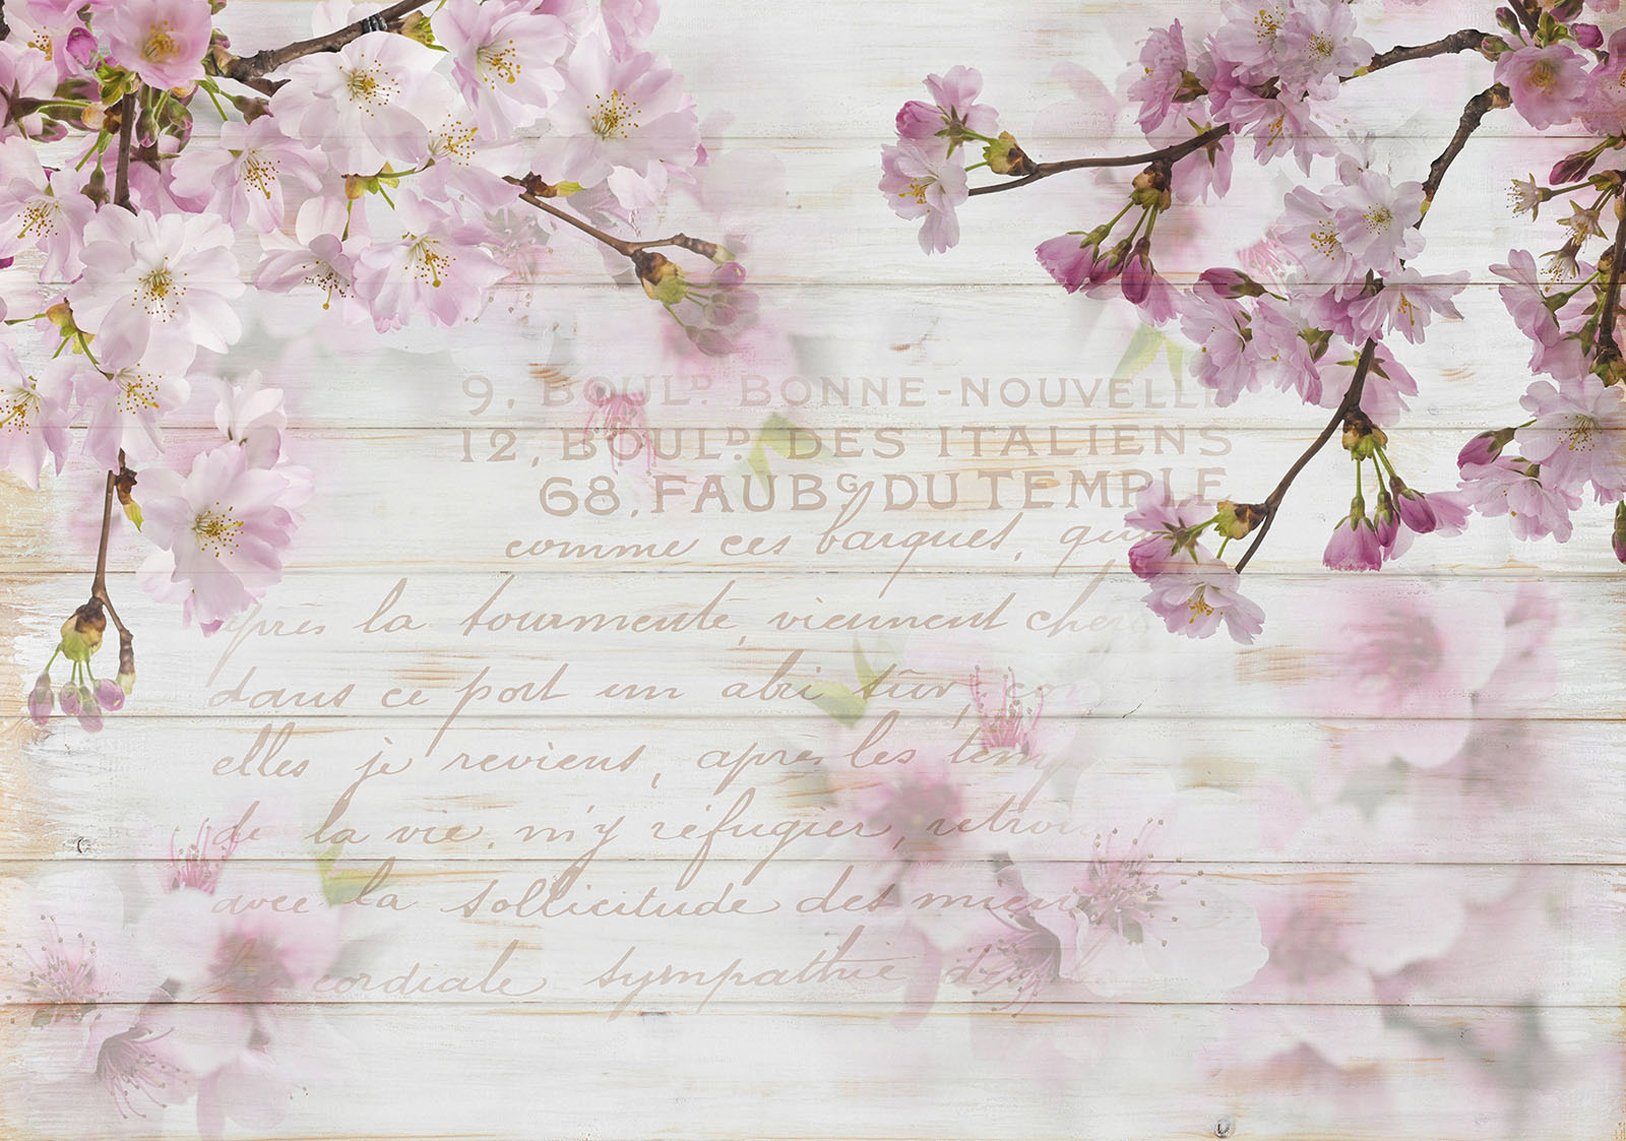 9, BOULD. BONNE-NOUVELLE
12, BOULD. DES ITALIENS
68, FAUBG. DU TEMPLE
comme ces barques, qui
après la tourmente, viennent cher
dans ce port un abri sûr, co
elles je reviens, après les temp
de la vie, m'y réfugier, retrou
avec la sollicitude des mien
la cordiale sympathie de